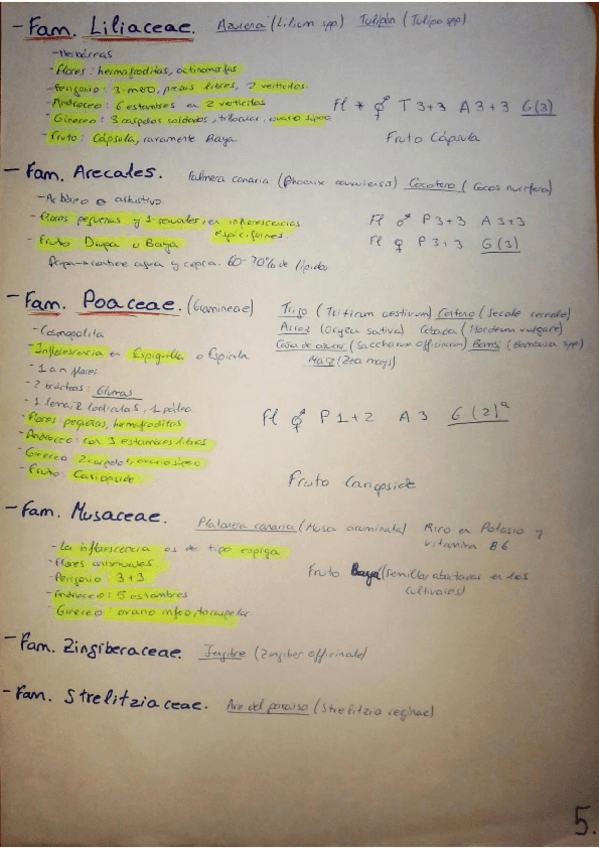 - Fam. Liliaceae. Azucena (Lilium spp) Tulipán (Tulipa spp)
- Herbáceas
- Flores: hermafroditas, actinomorfas
- Perigonio: 3-mero, piezas libres, 2 verticilos
- Androceo: 6 estambres en 2 verticilos
Fl * ⚥ T 3+3 A 3+3 G(3)
- Gineceo: 3 carpelos soldados, trilocular, ovario súpero
- Fruto: Cápsula, raramente Baya
Fruto Cápsula
- Fam. Arecales. Palmera canaria (Phoenix canariensis) Cocotero (Cocos nucifera)
- Arbóreo o arbustivo
- Flores pequeñas y 1 sexuales, en inflorescencias
espiciformes
Fl ♂ P 3+3 A 3+3
- Fruto Drupa o Baya
Fl ♀ P 3+3 G(3)
contiene agua y copra. 60-70% de lípidos
- Fam. Poaceae. (Gramineae) Trigo (Triticum aestivum) Centeno (Secale cereale)
Arroz (Oryza sativa) Cebada (Hordeum vulgare)
- Cosmopolita
Caña de azúcar (Saccharum officinarum) Bambú (Bambusa spp)
- Inflorescencia en Espiguilla o Espícula
Maíz (Zea mays)
- 1 a n flores
- 2 brácteas: Glumas
- 1 lema, 2 lodículas, 1 pálea
- Flores pequeñas, hermafroditas
Fl ⚥ P 1+2 A 3 G (2)ª
- Androceo: con 3 estambres libres
- Gineceo 2 carpelos, ovario súpero
- Fruto: Cariopside
Fruto Cariopside
- Fam. Musaceae. Platanera canaria (Musa acuminata) Rico en Potasio y
vitamina B6
- La inflorescencia es de tipo espiga
- Flores unisexuales
Fruto Baya (semillas abortadas en los
cultivares)
- Perigonio 3+3
- Androceo: 5 estambres
- Gineceo: ovario ínfero, tricarpelar
- Fam. Zingiberaceae. Jengibre (Zingiber officinale)
- Fam. Strelitziaceae. Ave del paraíso (Strelitzia reginae)
5.